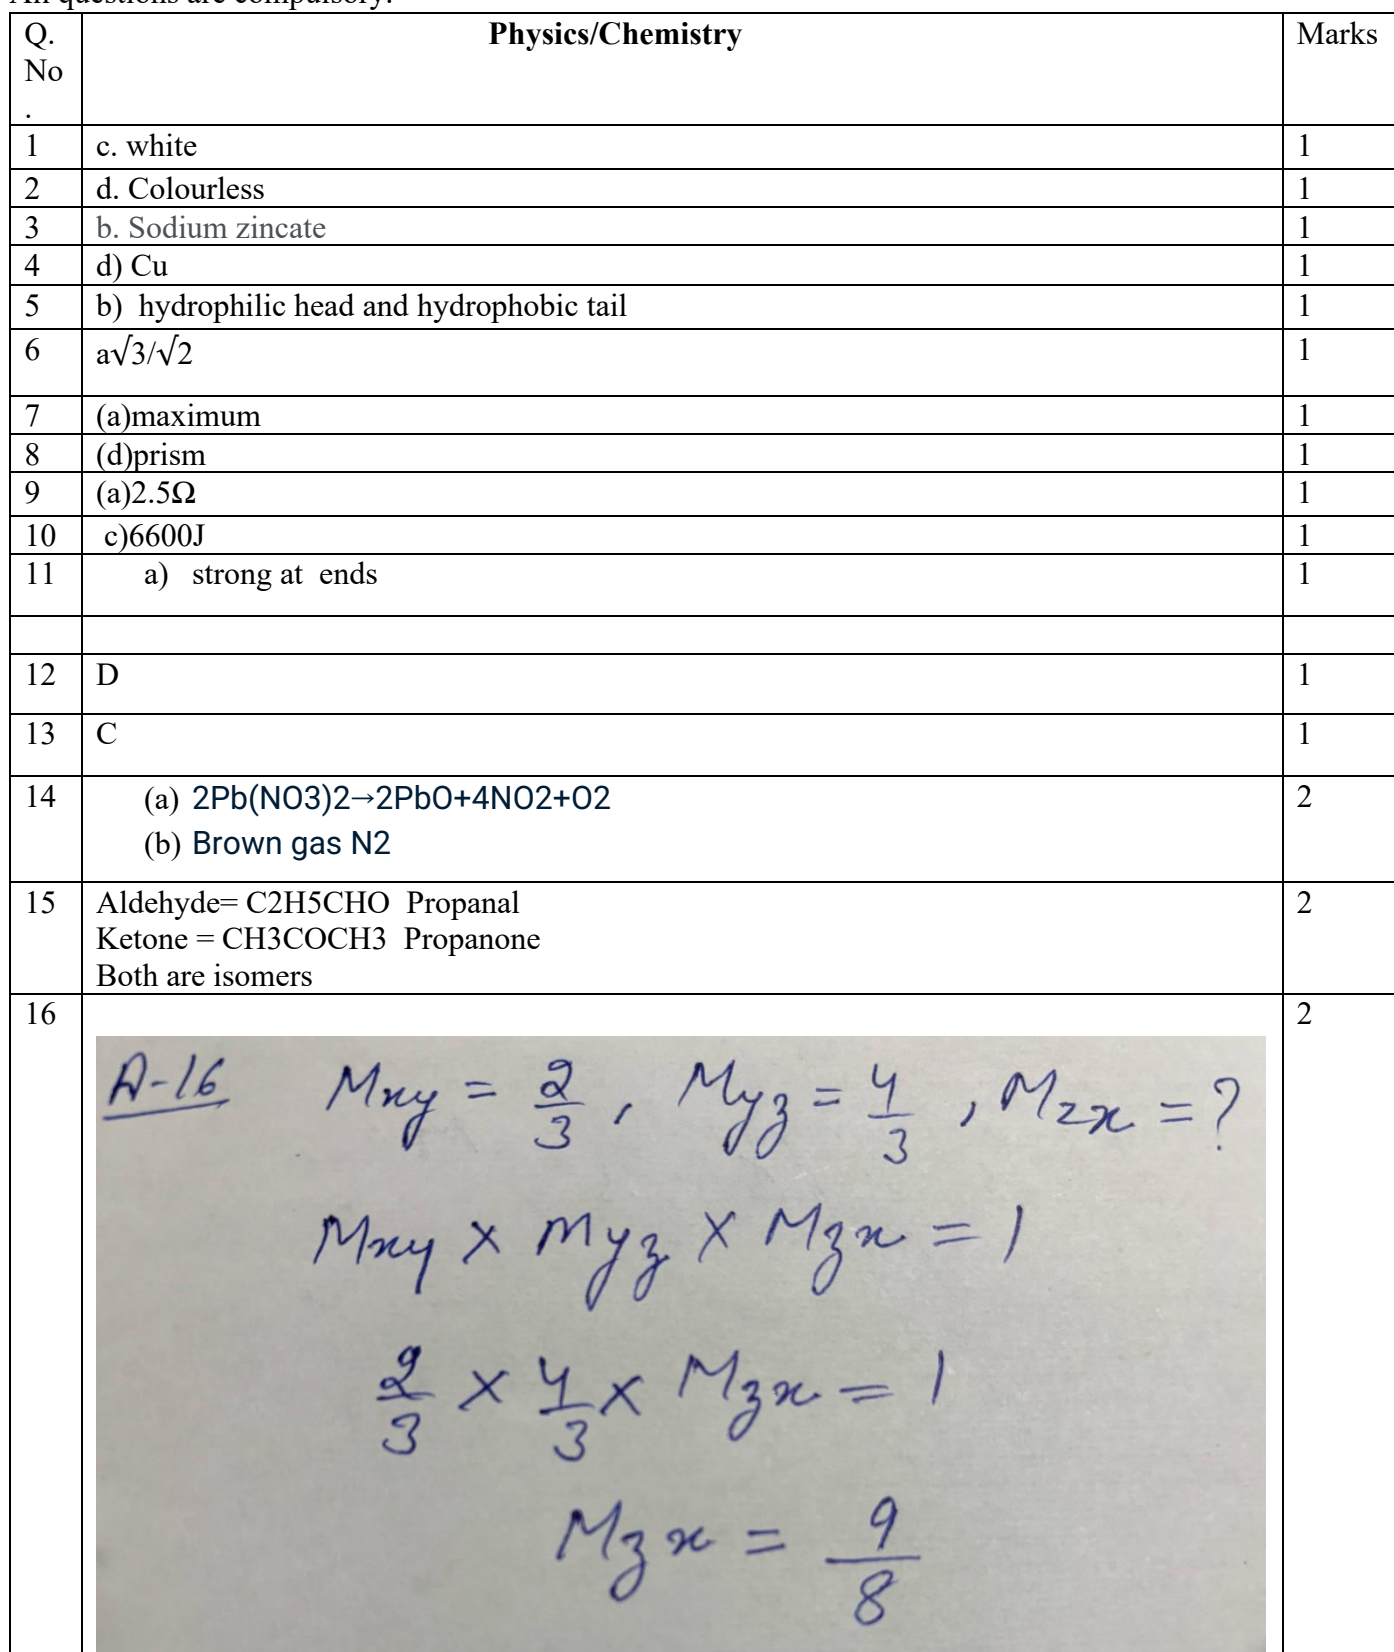 All questions are compulsory.
Q. No . Physics/Chemistry Marks
1 c. white 1
2 d. Colourless 1
3 b. Sodium zincate 1
4 d) Cu 1
5 b) hydrophilic head and hydrophobic tail 1
6 a√3/√2 1
7 (a)maximum 1
8 (d)prism 1
9 (a)2.5Ω 1
10 c)6600J 1
11 a) strong at ends 1
12 D 1
13 C 1
14 (a) 2Pb(NO3)2→2PbO+4NO2+O2 2
(b) Brown gas N2
15 Aldehyde= C2H5CHO Propanal 2
Ketone = CH3COCH3 Propanone
Both are isomers
16 2
A-16 Mxy = 2/3 , Myz = 4/3 , Mzx = ?
Mxy × Myz × Mzx = 1
2/3 × 4/3 × Mzx = 1
Mzx = 9/8